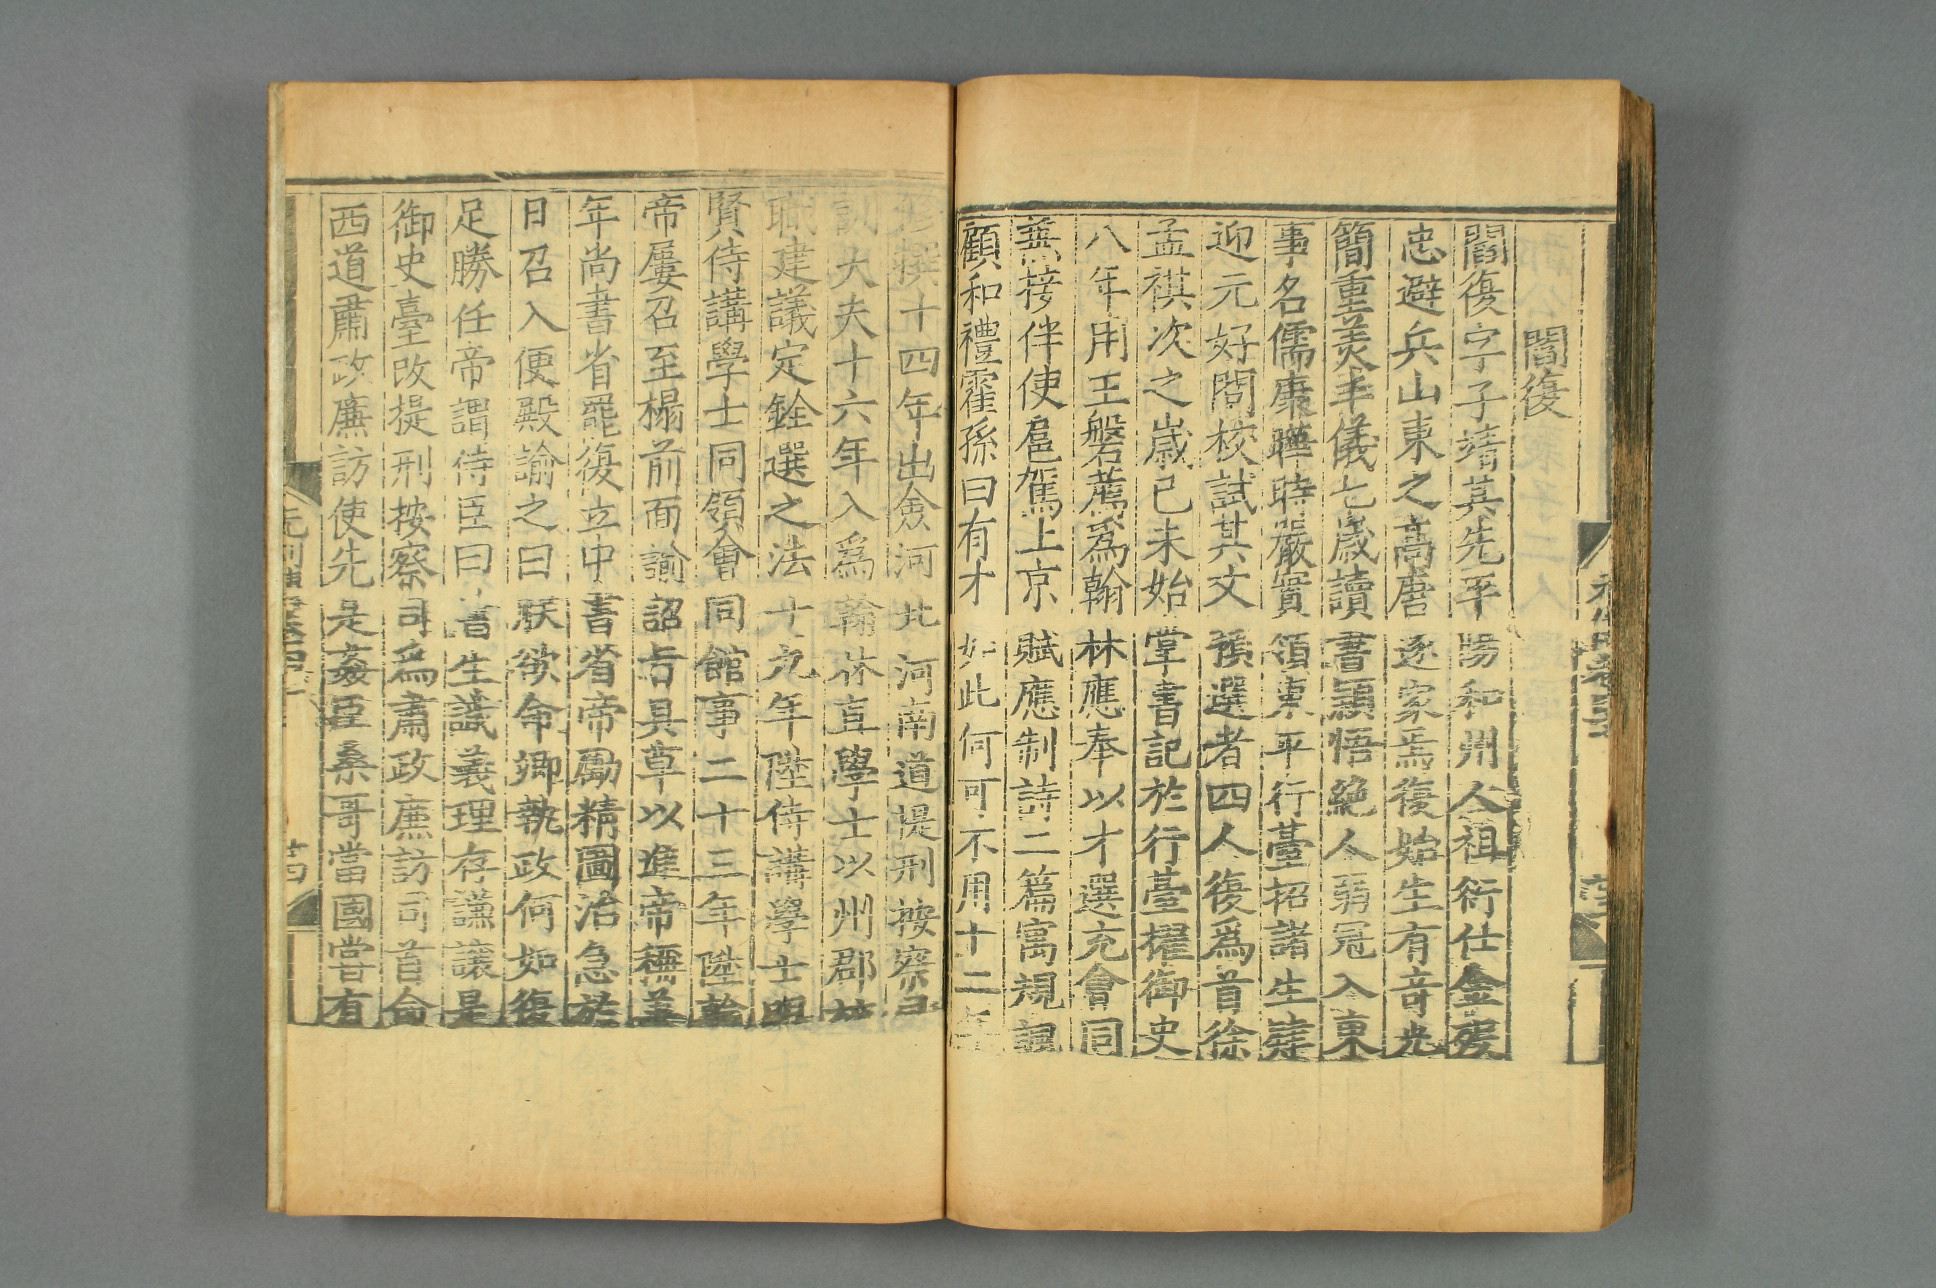 閻復
閻復字子靖其先平陽和州人祖衍仕金歿
忠避兵山東之高唐遂家焉復始生有竒光
簡重美丰儀七歲讀書穎悟絶人弱冠入東
事名儒康曄時嚴實領東平行臺招諸生肄
迎元好問校試其文預選者四人復爲首徐
孟祺次之歲己未始掌書記於行臺擢御史
八年用王磐薦爲翰林應奉以才選充會同
兼接伴使扈駕上京賦應制詩二篇寓規諷
顧和禮霍孫曰有才如此何可不用十二年
修撰十四年出僉河北河南道提刑按察司
訓大夫十六年入爲翰林直學士以州郡校
職建議定銓選之法十九年陞侍講學士明
賢侍講學士同領會同館事二十三年陞翰
帝屢召至榻前面諭詔旨具草以進帝稱善
年尚書省罷復立中書省帝勵精圖治急於
日召入便殿諭之曰朕欲命卿執政何如復
足勝任帝謂侍臣曰書生識義理存謙讓是
御史臺改提刑按察司爲肅政廉訪司首命
西道肅政廉訪使先是姦臣桑哥當國嘗有